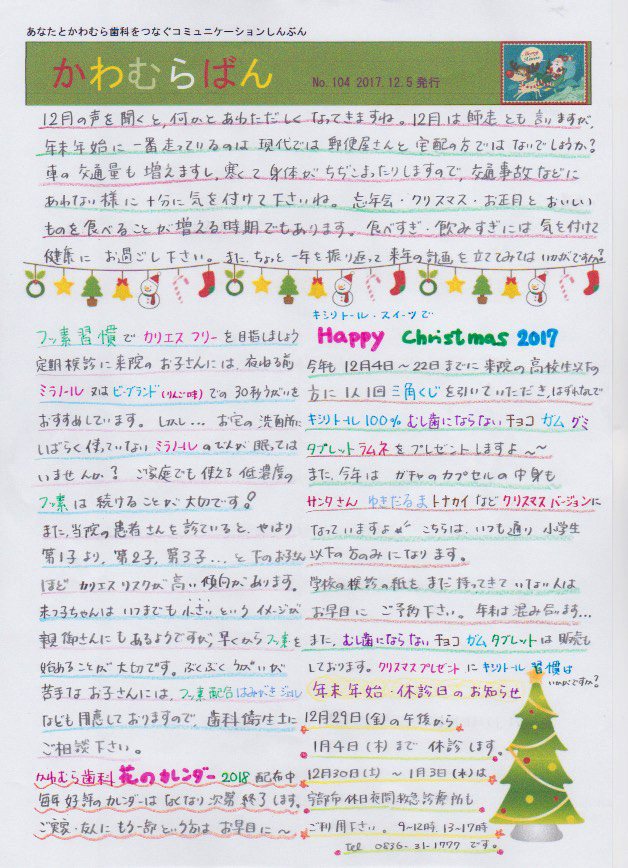 あなたとかわむら歯科をつなぐコミュニケーションしんぶん
かわむらばん No.104 2017.12.5 発行
12月の声を聞くと、何かとあわただしくなってきますね。12月は師走とも言いますが、
年末年始に一番走っているのは現代では郵便屋さんと宅配の方ではないでしょうか?
車の交通量も増えますし、寒くて身体がちぢこまったりしますので、交通事故などに
あわない様に十分に気を付けて下さいね。忘年会・クリスマス・お正月とおいしい
ものを食べることが増える時期でもあります。食べすぎ・飲みすぎには気を付けて
健康にお過ごし下さい。また、ちょっと一年を振り返って来年の計画を立ててみてはいかがですか?
フッ素習慣でカリエスフリーを目指しましょう
定期検診に来院のお子さんには、夜ねる前
ミラノール又はビーブランド(りんご味)での30秒うがいを
おすすめしています。しかし…お宅の洗面所に
しばらく使っていないミラノールのびんが眠っては
いませんか? ご家庭でも使える低濃度の
フッ素は続けることが大切です!
また、当院の患者さんを診ていると、やはり
第1子より、第2子、第3子…と下のお子さん
ほどカリエスリスクが高い傾向があります。
末っ子ちゃんはいつまでも小さいというイメージが
親御さんにもあるようですが、早くからフッ素を
始めることが大切です。ぶくぶくうがいが
苦手なお子さんには、フッ素配合はみがきジェル
なども用意しておりますので、歯科衛生士に
ご相談下さい。
かわむら歯科 花のカレンダー 2018 配布中
毎年好評のカレンダーはなくなり次第終了します。
ご実家・友人にもう一部という方はお早目に〜
キシリトール・スイーツで
Happy Christmas 2017
今年も12月4日〜22日までに来院の高校生以下の
方に1人1回三角くじを引いていただき、はずれなしで
キシリトール100% むし歯にならない チョコ ガム グミ
タブレット ラムネをプレゼントしますよ〜〜
また、今年はガチャのカプセルの中身も
サンタさん ゆきだるま トナカイなどクリスマスバージョンに
なっていますよ こちらは、いつも通り小学生
以下の方のみになります。
学校の検診の紙をまだ持ってきていない人は
お早目にご予約下さい。年末は混み合います…
また、むし歯にならないチョコ ガム タブレットは販売も
しております。クリスマスプレゼントにキシリトール習慣は
いかがですか?
年末年始・休診日のお知らせ
12月29日(金)の午後から
1月4日(木)まで休診します。
12月30日(土)〜1月3日(水)は
宇部市休日夜間救急診療所も
ご利用下さい。9-12時、13-17時
tel 0836-31-1777です。